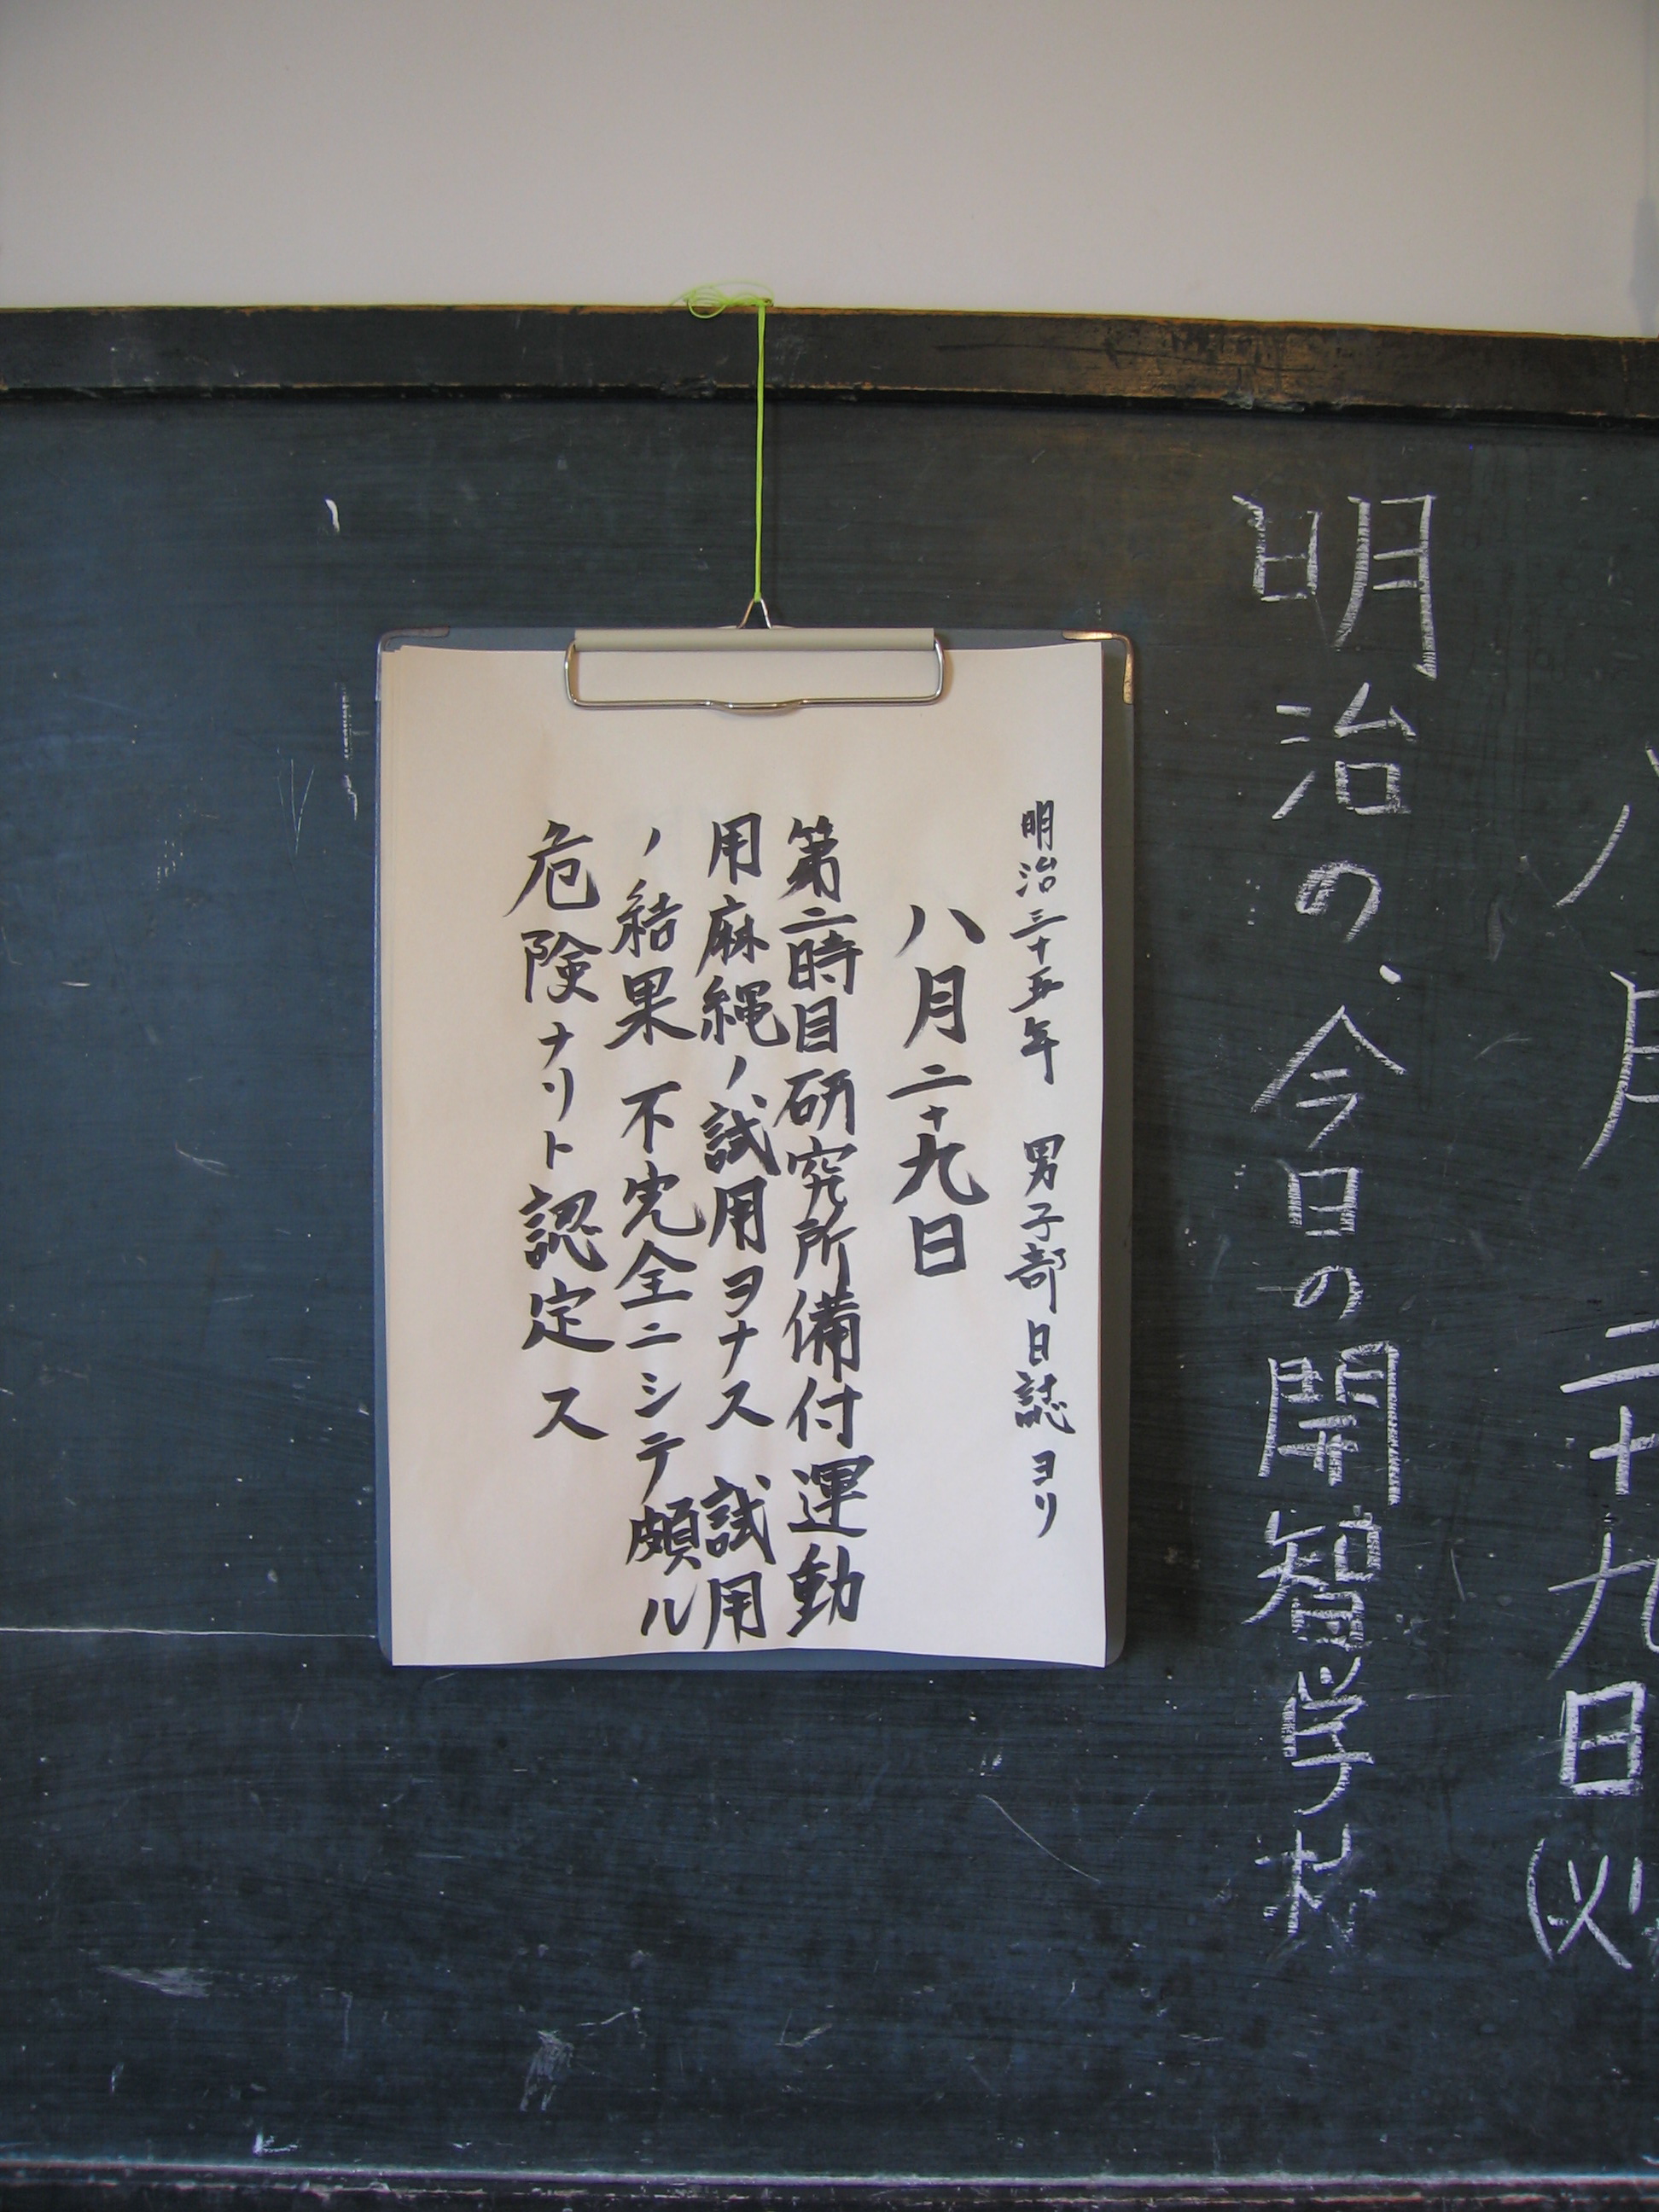 八月二十九日(火)
明治の、今日の開智学校
明治三十五年 男子部日誌ヨリ
八月二十九日
第二時目研究所備付運動
用麻縄ノ試用ヲナス 試用
ノ結果 不完全ニシテ頗ル
危険ナリト認定ス